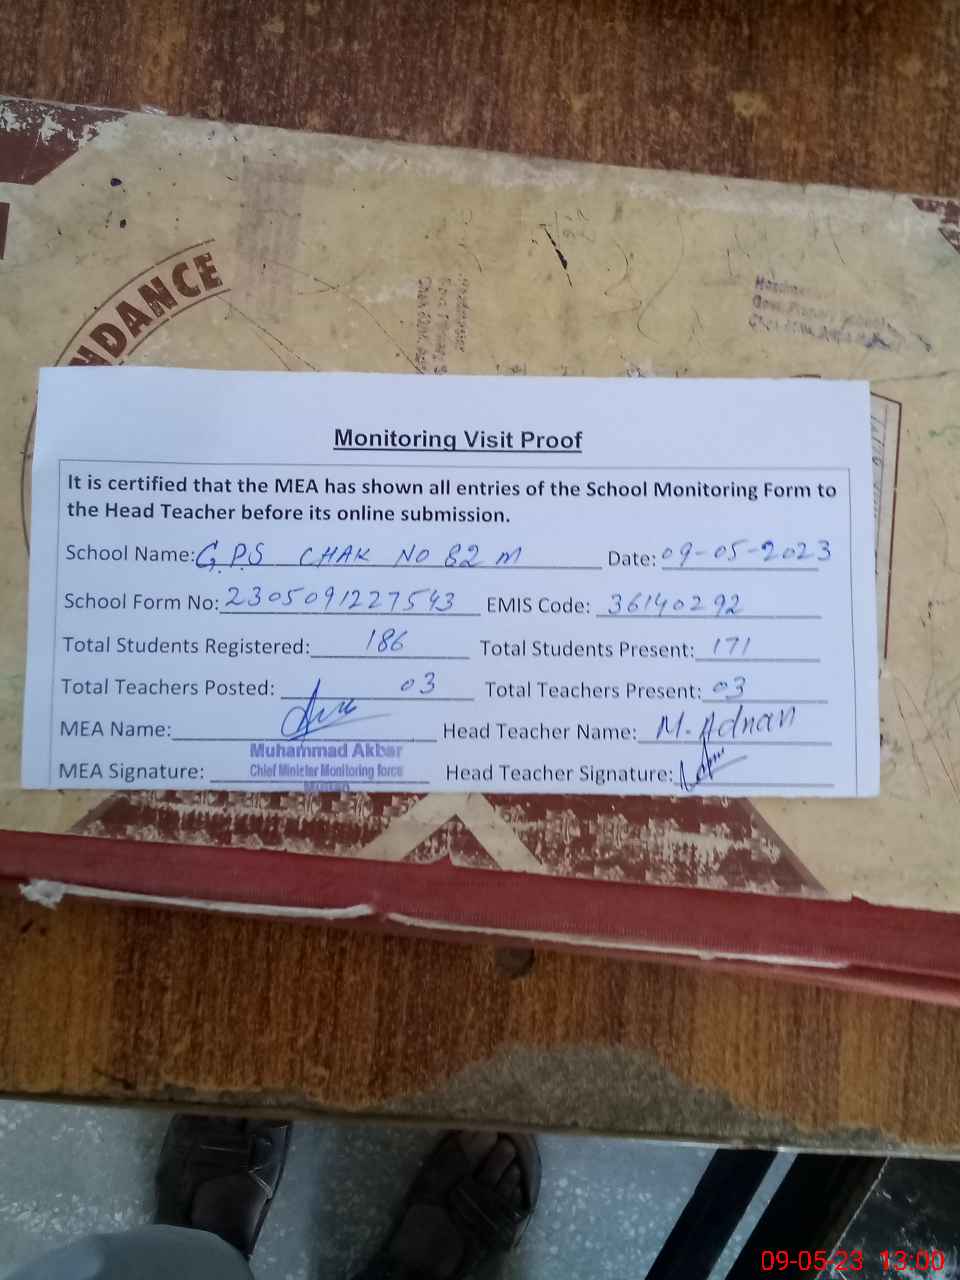 NDANCE
Headmaster
Monitoring Visit Proof
It is certified that the MEA has shown all entries of the School Monitoring Form to
the Head Teacher before its online submission.
School Name: G.P.S CHAK NO 82 M Date: 09-05-2023
School Form No: 2305091227543 EMIS Code: 36140292
Total Students Registered: 186 Total Students Present: 171
Total Teachers Posted: 03 Total Teachers Present: 03
MEA Name: Head Teacher Name: M. Adnan
Muhammad Akbar
MEA Signature: Chief Minister Monitoring force Head Teacher Signature:
09-05-23 13:00